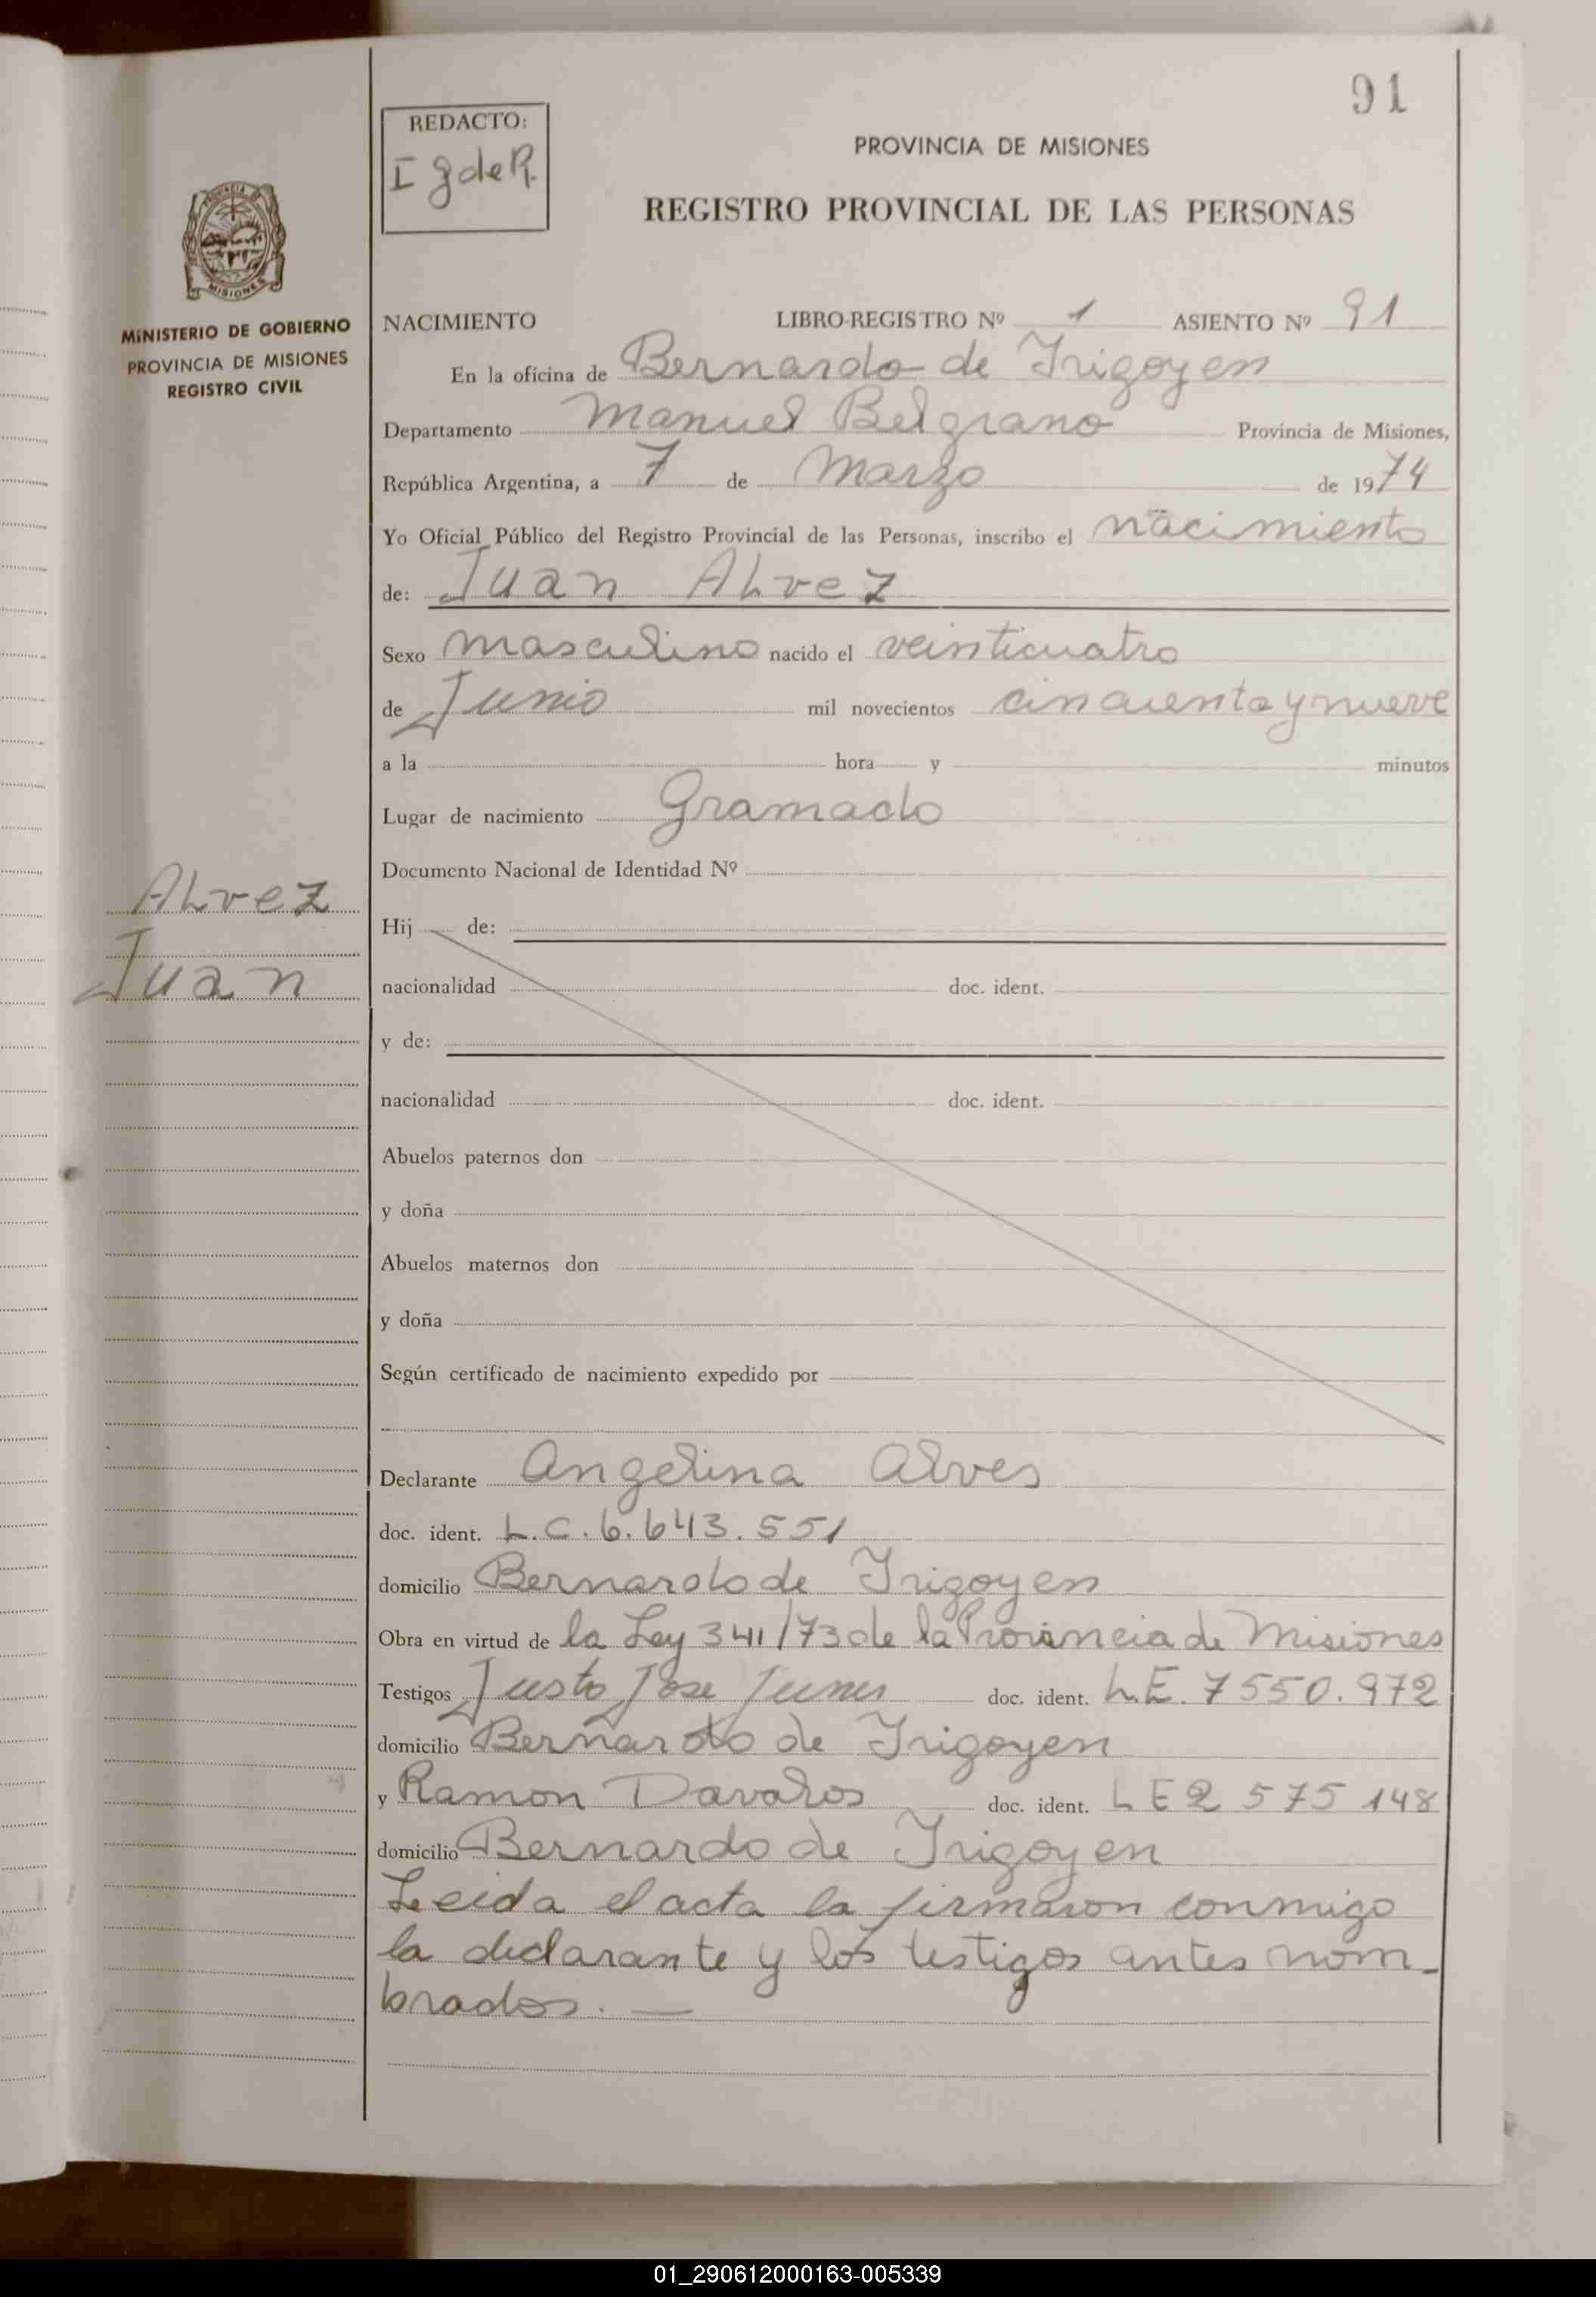 91
REDACTO:
I g de R.
PROVINCIA DE MISIONES
REGISTRO PROVINCIAL DE LAS PERSONAS
PROVINCIA DE
MISIONES
MINISTERIO DE GOBIERNO
PROVINCIA DE MISIONES
REGISTRO CIVIL
NACIMIENTO LIBRO-REGISTRO Nº 1 ASIENTO Nº 91
En la oficina de Bernardo de Irigoyen
Departamento Manuel Belgrano Provincia de Misiones,
República Argentina, a 7 de Marzo de 1974
Yo Oficial Público del Registro Provincial de las Personas, inscribo el nacimiento
de: Juan Alvez
Sexo masculino nacido el veinticuatro
de Junio mil novecientos cincuenta y nueve
a la hora y minutos
Lugar de nacimiento Gramado
Documento Nacional de Identidad Nº
Alvez
Juan
Hij de:
nacionalidad doc. ident.
y de:
nacionalidad doc. ident.
Abuelos paternos don
y doña
Abuelos maternos don
y doña
Según certificado de nacimiento expedido por
Declarante Angelina Alves
doc. ident. L.C. 6.643.551
domicilio Bernardo de Irigoyen
Obra en virtud de la Ley 341/73 de la Provincia de Misiones
Testigos Justo Jose doc. ident. L.E. 7550.972
domicilio Bernardo de Irigoyen
y Ramon Davalos doc. ident. LE 2 575 148
domicilio Bernardo de Irigoyen
Leida el acta la firmaron conmigo
la declarante y los testigos antes nom-
brados. —
01_290612000163-005339